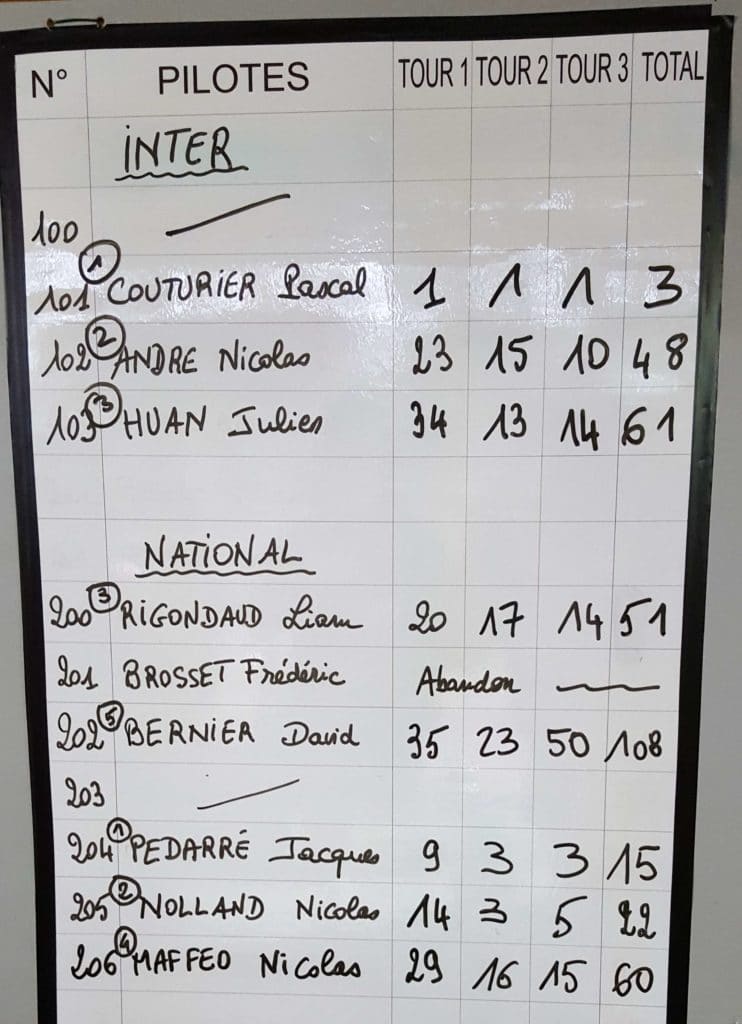 N° PILOTES TOUR 1 TOUR 2 TOUR 3 TOTAL
INTER
100
101 1 COUTURIER Pascal 1 1 1 3
102 2 ANDRE Nicolas 23 15 10 48
103 3 HUAN Julien 34 13 14 61
NATIONAL
200 3 RIGONDAUD Liam 20 17 14 51
201 BROSSET Frédéric Abandon
202 5 BERNIER David 35 23 50 108
203
204 1 PEDARRÉ Jacques 9 3 3 15
205 2 NOLLAND Nicolas 14 3 5 22
206 4 MAFFEO Nicolas 29 16 15 60